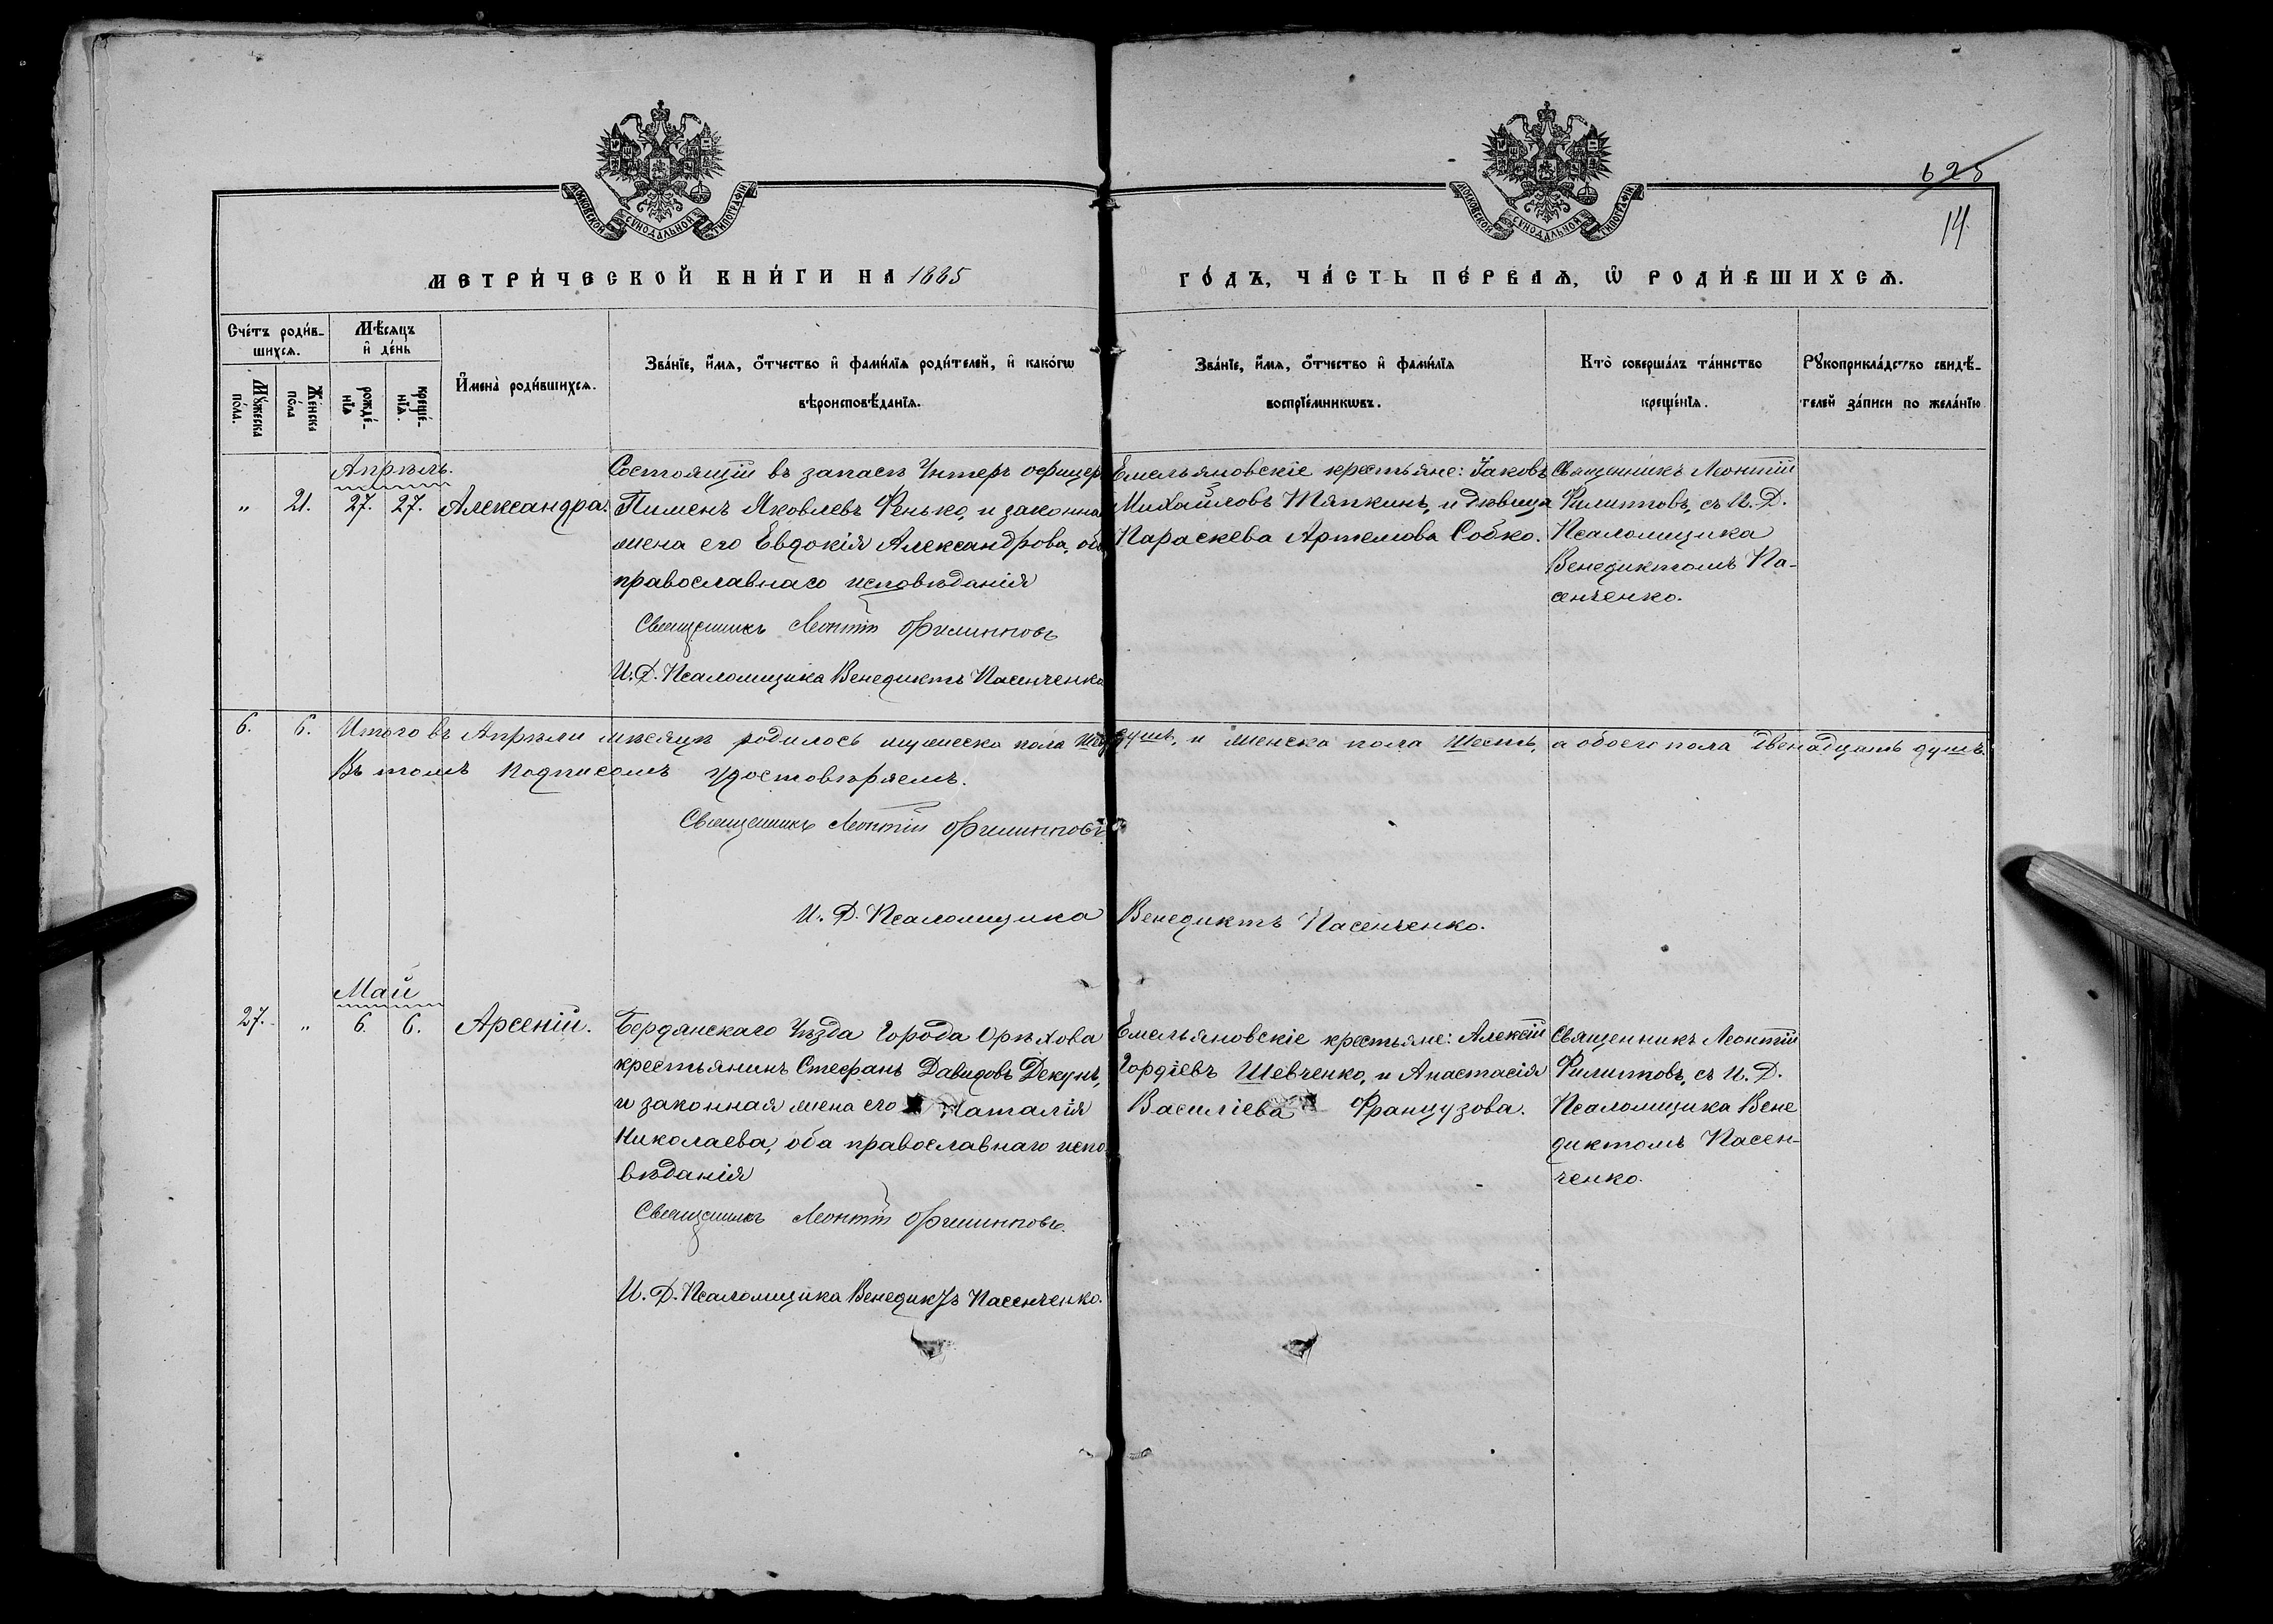 625
14
МОСКОВСКОЙ СѴНОДАЛЬНОЙ ТИПОГРАФІИ
МОСКОВСКОЙ СѴНОДАЛЬНОЙ ТИПОГРАФІИ
МЕТРИ́ЧЕСКОЙ КНИ́ГИ НА 1885
ГО́ДЪ, ЧА́СТЬ ПЕ́РВАѦ, Ѽ РОДИ́ВШИХСѦ.
Сче́тъ роди́в-
шихсѧ.
Мꙋ́жеска по́ла.
Же́нска по́ла
Мѣ́сѧцъ и҆ де́нь
рожде́-нїѧ
креще́-нїѧ.
И҆мена̀ роди́вшихсѧ.
Зва́нїе, и҆́мѧ, ѻ҆́тчество и҆ фами́лїѧ роди́телей, и҆ како́гѡ
вѣроисповѣ́данїѧ.
Зва́нїе, и҆́мѧ, ѻ҆́тчество и҆ фами́лїѧ
воспрїе́мникѡвъ.
Кто̀ соверша́лъ та́инство
креще́нїѧ.
Рꙋкоприкла́дство свидѣ́-
телей за́писи по жела́нїю
Апрѣль.
" 21. 27. 27. Александра.
Состоящій въ запасѣ Унтеръ офицеръ
Пименъ Яковлевъ Фенько, и законна
жена его Евдокія Александрова, оба
православнаго исповѣданія
Священникъ Леонтій Филипповъ
И. Д. Псаломщика Венедиктъ Пасенченко
Емельяновскіе крестьяне: Іаковъ
Михайловъ Тяпкинъ, и дѣвица
Параскева Артемова Собко.
Священникъ Леонтій
Филипповъ, съ И. Д.
Псаломщика
Венедиктомъ Па-
сенченко.
6. 6. Итого въ Апрѣли мѣсяцѣ родилось мужеска пола шесть душъ, и женска пола шесть, а обоего пола двенадцать душъ.
Въ томъ подписомъ удостовѣряемъ.
Священникъ Леонтій Филипповъ
И. Д. Псаломщика Венедиктъ Пасенченко.
Май
27. " 6. 6. Арсеній.
Бердянскаго Уѣзда Города Орѣхова
крестьянинъ Стефанъ Давидовъ Декунъ,
и законная жена его Наталія
Николаева, оба православнаго испо
вѣданія
Священникъ Леонтій Филипповъ.
И. Д. Псаломщика Венедиктъ Пасенченко.
Емельяновскіе крестьяне: Алексій
Гордіевъ Шевченко, и Анастасія
Василіева Французова.
Священникъ Леонтій
Филипповъ, съ И. Д.
Псаломщика Вене
диктомъ Пасен-
ченко.